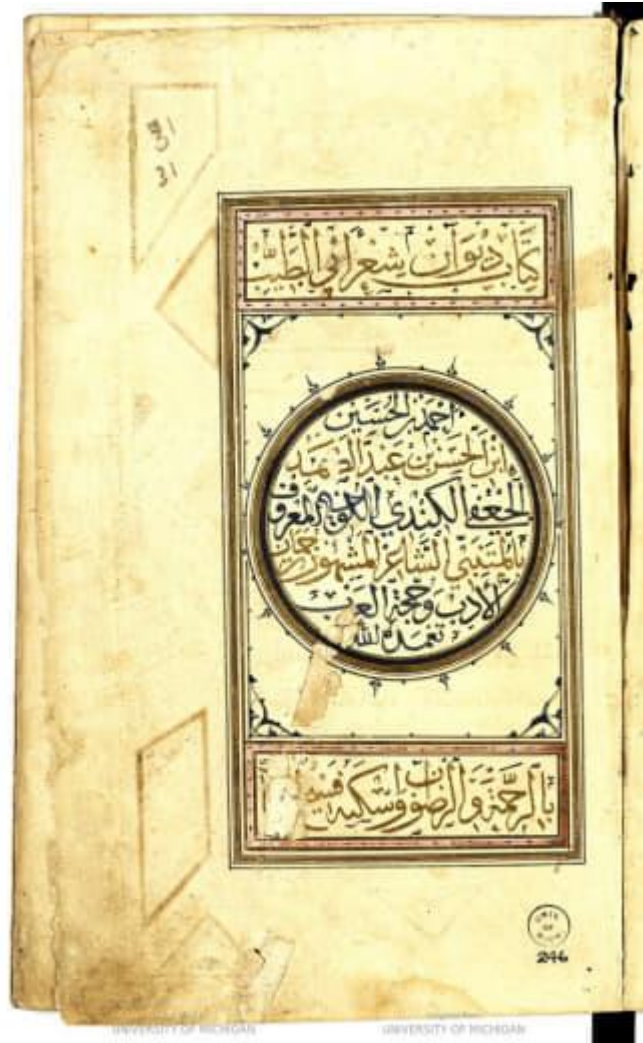 كتاب ديوان شعر أبي الطيب
أحمد بن الحسين
ابن الحسن بن عبد الصمد
الجعفي الكندي الكوفي المعروف
بالمتنبي الشاعر المشهور
الأدب وحجة العرب
تغمده الله
بالرحمة والرضوان وأسكنه فسيح
UNIV
OF
246
UNIVERSITY OF MICHIGAN
UNIVERSITY OF MICHIGAN